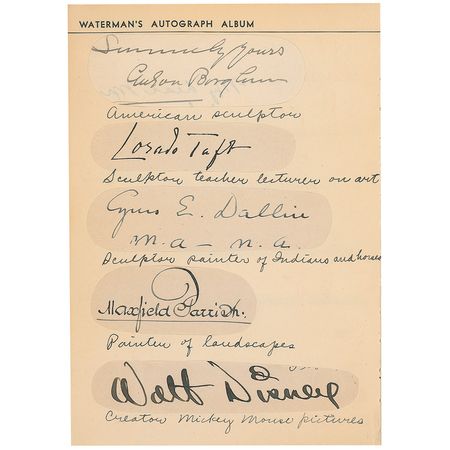 WATERMAN'S AUTOGRAPH ALBUM
Sincerely yours
Gutzon Borglum
American sculptor
Lorado Taft
Sculptor teacher lecturer on art
Cyrus E. Dallin
M.A – N.A.
Sculptor painter of Indians and horses
Maxfield Parrish.
Painter of landscapes
Walt Disney
Creator Mickey Mouse pictures